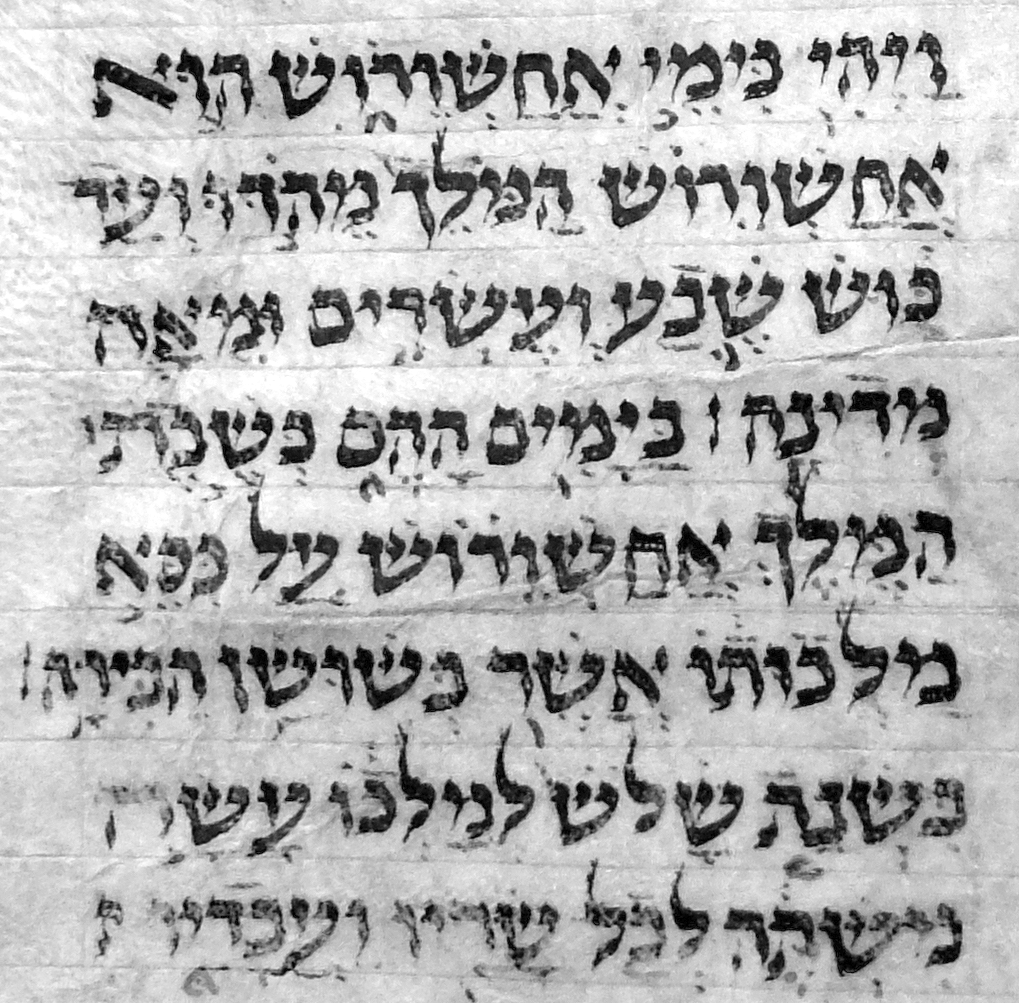 וַיְהִי בִּימֵי אֲחַשְׁוֵרוֹשׁ הוּא
אֲחַשְׁוֵרוֹשׁ הַמֹּלֵךְ מֵהֹדּוּ וְעַד
כּוּשׁ שֶׁבַע וְעֶשְׂרִים וּמֵאָה
מְדִינָה׃ בַּיָּמִים הָהֵם כְּשֶׁבֶת
הַמֶּלֶךְ אֲחַשְׁוֵרוֹשׁ עַל כִּסֵּא
מַלְכוּתוֹ אֲשֶׁר בְּשׁוּשַׁן הַבִּירָה׃
בִּשְׁנַת שָׁלוֹשׁ לְמָלְכוֹ עָשָׂה
מִשְׁתֶּה לְכָל שָׂרָיו וַעֲבָדָיו